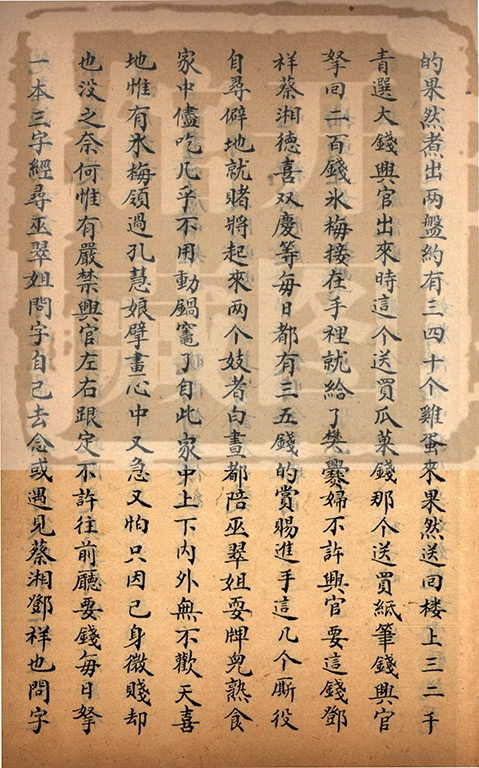 的果然煮出两盤約有三四十个雞蛋來果然送回楼上三二千
青選大錢興官出來時這个送買瓜菓錢那个送買紙筆錢興官
拏回二百錢氷梅接在手裡就給了樊爨婦不許興官要這錢鄧
祥蔡湘德喜双慶等每日都有三五錢的賞賜進手這几个厮役
自尋僻地就賭將起來两个妓者白晝都陪巫翠姐耍牌兒熟食
家中儘吃几乎不用動鍋竈了自此家中上下内外無不歡天喜
地惟有氷梅領過孔慧娘臂畫心中又急又怕只因已身微賤却
也没之奈何惟有嚴禁興官左右跟定不許往前廳要錢每日拏
一本三字經尋巫翠姐問字自己去念或遇見蔡湘鄧祥也問字